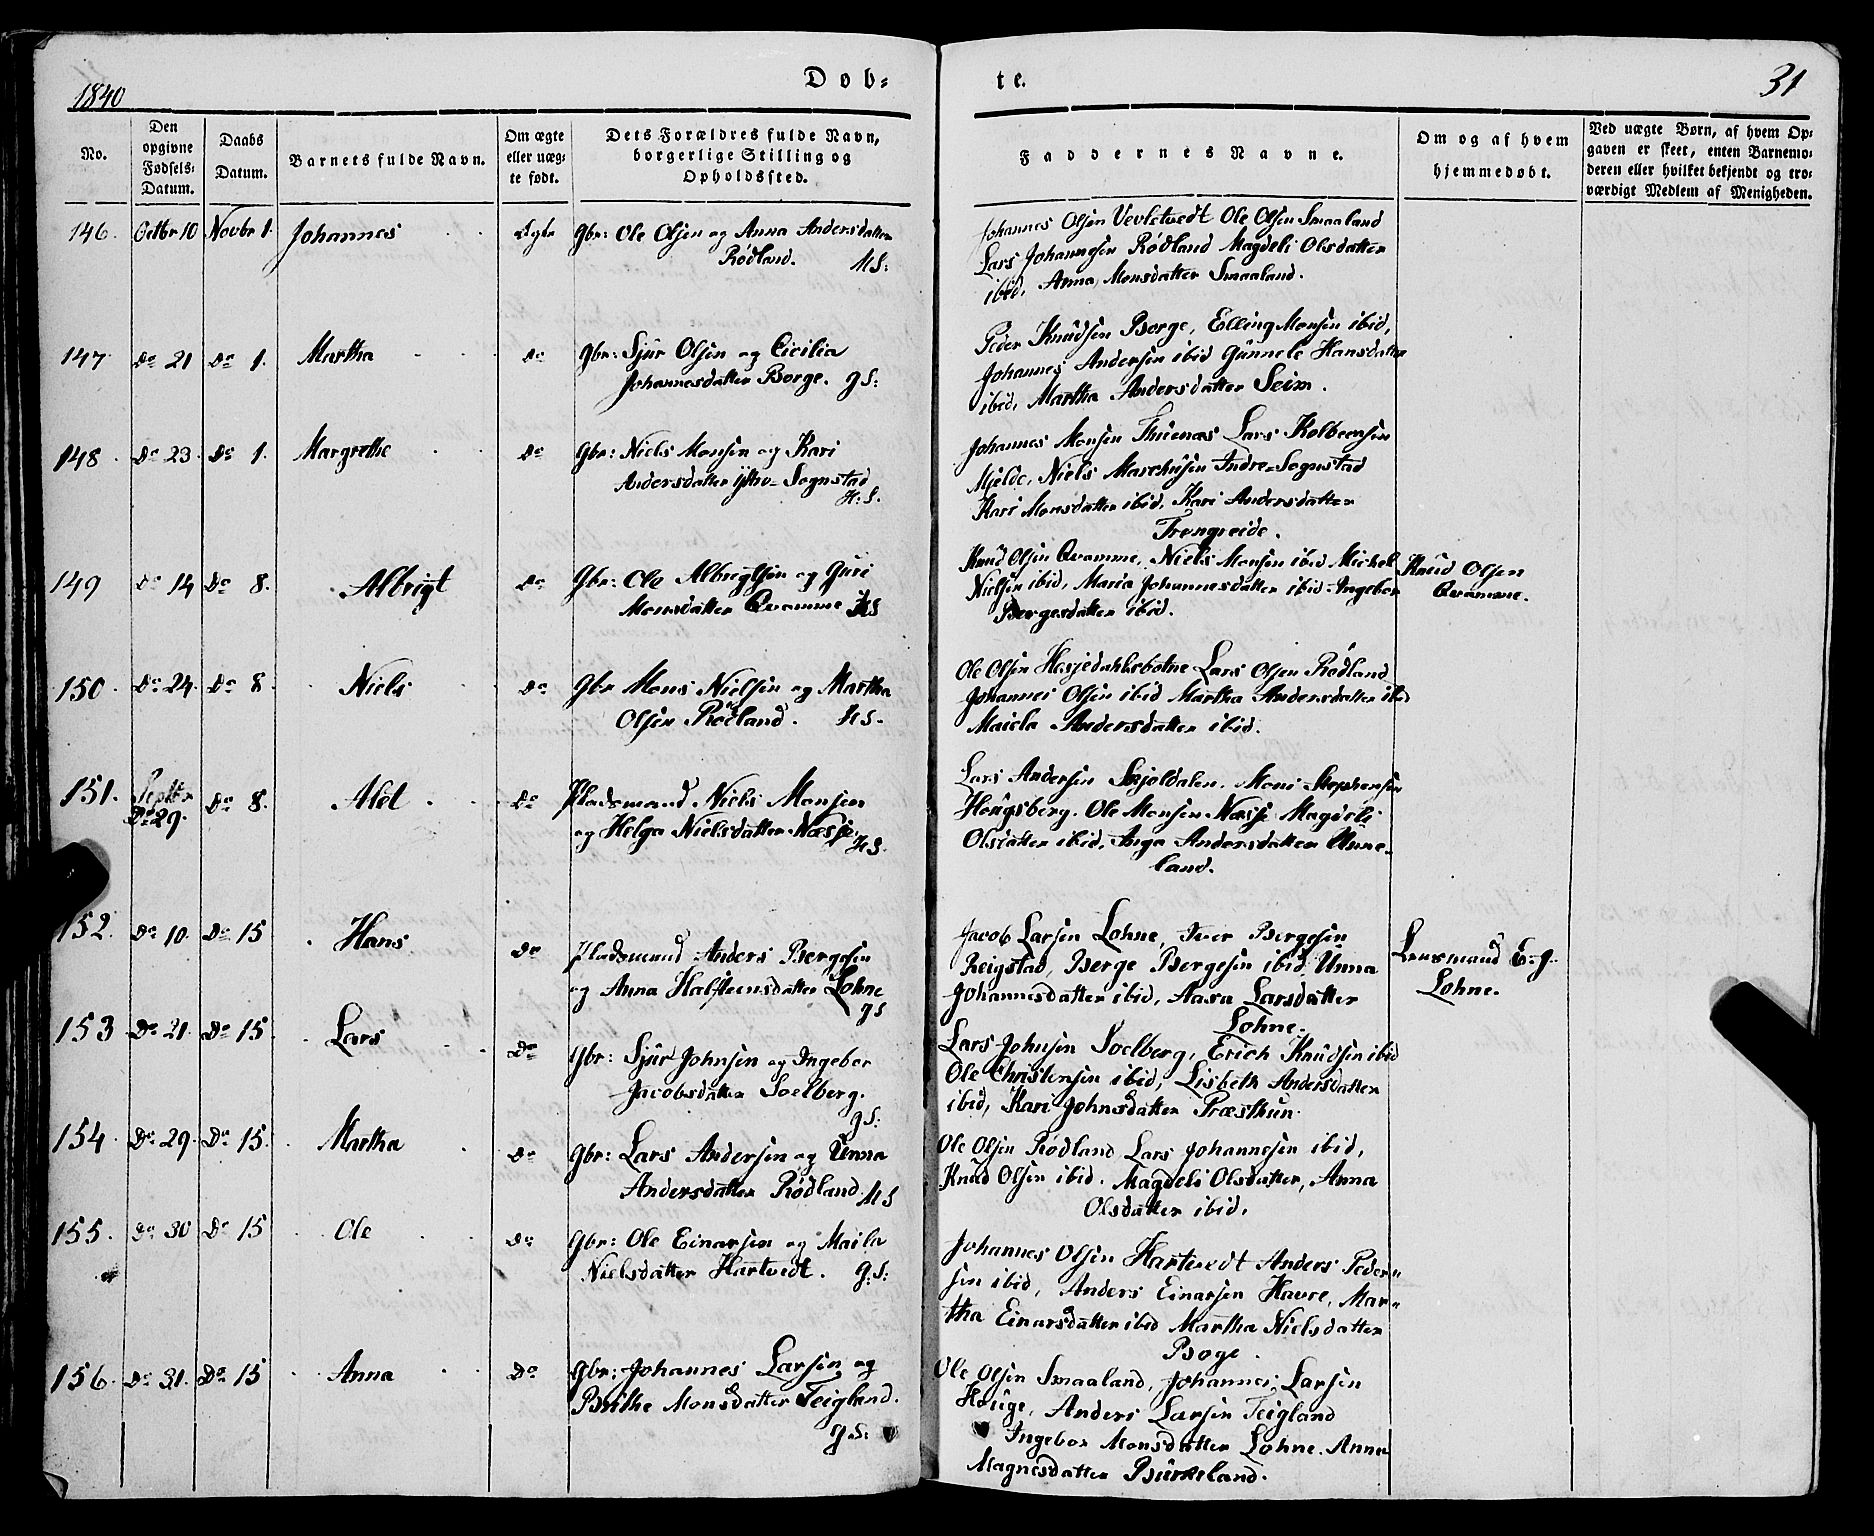 1840
Døb=
te.
31
No.
Den
opgivne
Fødsels=
Datum.
Daabs
Datum.
Barnets fulde Navn.
Om ægte
eller uæg=
te født.
Dets Forældres fulde Navn,
borgerlige Stilling og
Opholdssted.
Faddernes Navne.
Om og af hvem
hjemmedøbt.
Ved uægte Børn, af hvem Op=
gaven er skeet, enten Barnemo=
deren eller hvilket bekjendt og tro=
værdigt Medlem af Menigheden.
146. Octbr 10 Novbr 1. Johannes Ægte Gbr: Ole Olsen og Anna Andersdatter
Rødland. HS:
Johannes Olsen Vevletvedt Ole Olsen Smaaland
Lars Johannesen Rødland Magdeli Olsdatter
ibid, Anna Monsdatter Smaaland.
147. Do 21 Do 1. Martha Do Gbr: Sjur Olsen og Cicilia
Johannesdatter Borge. GS:
Peder Knudsen Borge, Elling Monsen ibid,
Johannes Andersen ibid Gunnele Hansdatter
ibid, Martha Andersdatter Seim.
148. Do 23. Do 1. Margrethe Do Gbr: Niels Monsen og Kari
Andersdatter Ythre-Sognstad
H:S.
Johannes Monsen Thuenæs Lars Kolbeensen
Mjelde, Niels Marchusen Indre-Sognstad
Kari Monsdatter ibid, Kari Andersdatter
Trengreide.
149 Do 14 Do 8. Albrigt Do Gbr: Ole Albrigtsen og Guri
Monsdatter Qvamme HS
Knud Olsen Qvamme, Niels Monsen ibid Michel
Nielsen ibid, Maria Johannesdatter ibid Ingebor
Bergesdatter ibid.
Knud Olsen
Qvamme.
150. Do 24. Do 8. Niels Do Gbr Mons Nielsen og Martha
Olsen Rødland. HS.
Ole Olsen Hesjedahlsbotne Lars Olsen Rødland
Johannes Olsen ibid Martha Andersdatter ibid
Maiela Andersdatter ibid.
151. Septbr
Do 29. Do 8. Alet Do Pladsmand Niels Monsen
og Helga Nielsdatter Næsse. HS.
Lars Andersen Skjoldalen. Mons Stephensen
Hougsberg. Ole Monsen Næsse Magdeli
Olsdatter ibid, Inga Andersdatter Unne-
land.
152. Do 10. Do 15 Hans Do Pladsmand Anders Bergesen
og Anna Halsteensdatter Lohne
GS
Jacob Larsen Lohne, Iver Bergesen
Reigstad, Berge Bergesen ibid, Unna
Johannesdatter ibid, Aasa Larsdatter
Lohne.
Lensmand E. g.
Lohne.
153 Do 21. Do 15. Lars Do Gbr: Sjur Johnsen og Ingebor
Jacobsdatter Soelberg.
GS:
Lars Johnsen Soelberg, Erich Knudsen ibid
Ole Christensen ibid, Lisbeth Andersdatter
ibid, Kari Johnsdatter Præsthun.
154. Do 29. Do 15. Martha Do Gbr: Lars Andersen og Unna
Andersdatter Rødland. HS
Ole Olsen Rødland Lars Johannesen ibid,
Knud Olsen ibid. Magdeli Olsdatter, Anna
Olsdatter ibid.
155. Do 30 Do 15 Ole Do Gbr: Ole Einarsen og Maila
Nielsdatter Hartvedt. G:S:
Johannes Olsen Hartvedt Anders Peder=
sen ibid, Anders Einarsen Havre, Mar=
tha Einarsdatter ibid Martha Nielsdatter
Boge.
156. Do 31. Do 15 Anna Do Gbr: Johannes Larsen og
Brithe Monsdatter Teigland.
G.S:
Ole Olsen Smaaland, Johannes Larsen
Houge, Anders Larsen Teigland
Ingebor Monsdatter Lohne. Anna
Magnesdatter Burkeland.